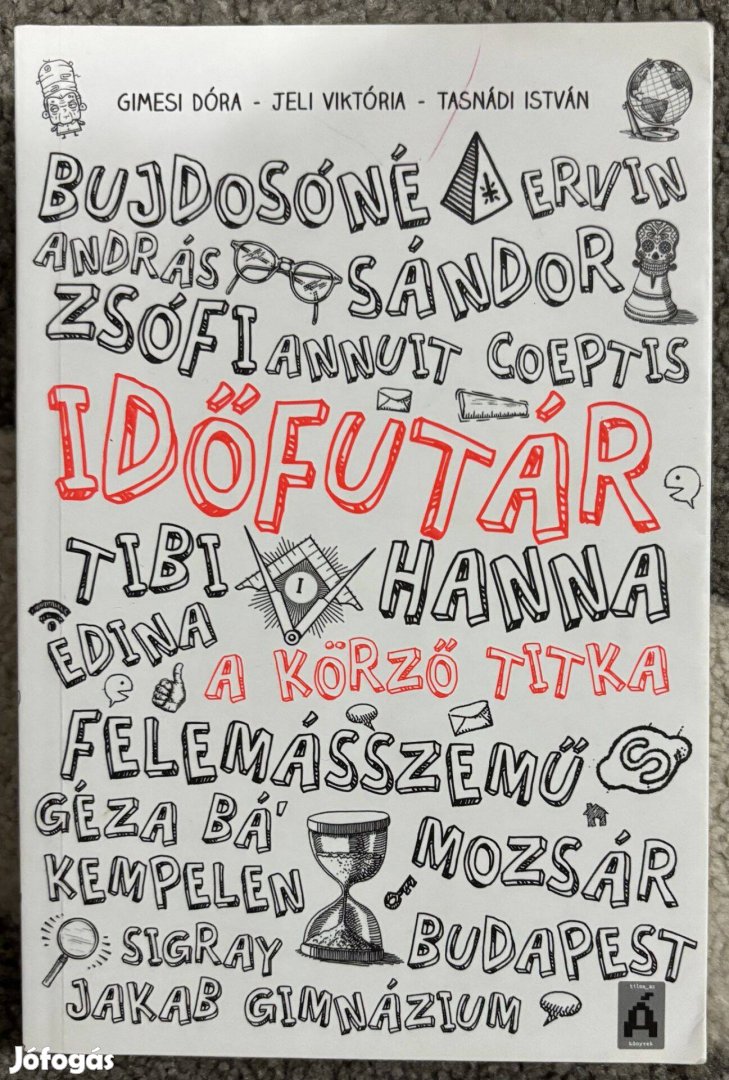 GIMESI DÓRA - JELI VIKTÓRIA - TASNÁDI ISTVÁN
BUJDOSÓNÉ ERVIN
ANDRÁS SÁNDOR
ZSÓFI ANNUIT COEPTIS
IDŐFUTÁR
TIBI I HANNA
EDINA
A KÖRZŐ TITKA
FELEMÁSSZEMŰ S
GÉZA BÁ'
MOZSÁR
KEMPELEN
SIGRAY BUDAPEST
JAKAB GIMNÁZIUM
tilos_az
Á
könyvek
Jófogás